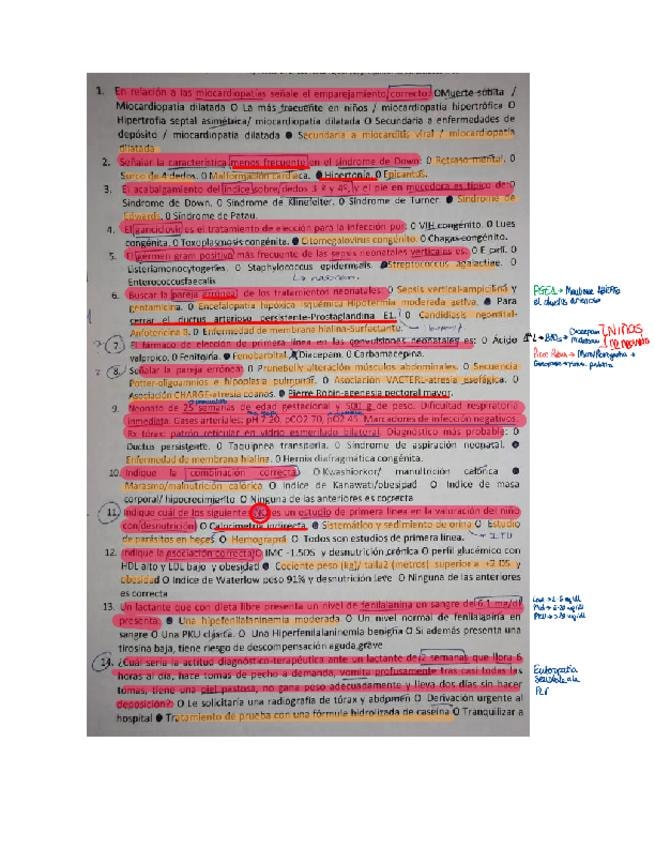 1. En relación a las miocardiopatías señale el emparejamiento correcto: O Muerte súbita /
Miocardiopatia dilatada O La más frecuente en niños / miocardiopatia hipertrófica O
Hipertrofia septal asimétrica/ miocardiopatia dilatada O Secundaria a enfermedades de
depósito / miocardiopatia dilatada ● Secundaria a miocarditis viral / miocardiopatia
dilatada
2. Señalar la característica menos frecuente en el síndrome de Down: O Retraso mental. O
Surco de 4 dedos. O Malformación cardiaca. ● Hipertonía. O Epicantus.
3. El acabalgamiento del índice sobre dedos 3 º y 4º, y el pie en mecedora es típico de: O
Síndrome de Down. O Síndrome de Klinefelter. O Síndrome de Turner. ● Síndrome de
Edwards. O Síndrome de Patau.
4. El ganciclovir es el tratamiento de elección para la infección por: O VIH congénito. O Lues
congénita. O Toxoplasmosis congénita. ● Citomegalovirus congénito. O Chagas congénito.
5. El germen gram positivo más frecuente de las sepsis neonatales verticales es: O E coli. O
Listeriamonocytogenes. O Staphylococcus epidermidis. ● Streptococcus agalactiae. O
Enterococcusfaecalis
6. Buscar la pareja errónea de los tratamientos neonatales: O Sepsis vertical-ampicilina y
gentamicina. O Encefalopatía hipóxica isquémica Hipotermia moderada activa. ● Para
cerrar el ductus arterioso persistente-Prostaglandina E1. O Candidiasis neonatal-
Anfotericina B. O Enfermedad de membrana hialina-Surfactante.
PGE1 → Mantiene abierto
el ductus arterioso
7. El fármaco de elección de primera línea en las convulsiones neonatales es: O Ácido
valproico. O Fenitoína. ● Fenobarbital. Diacepam. O Carbamacepina.
8. Señalar la pareja errónea: O PruneBelly-alteración músculos abdominales. O Secuencia
Potter-oligoamnios e hipoplasia pulmonar. O Asociación VACTERL-atresia esofágica. O
Asociación CHARGE-atresia coanas. ● Pierre Robin-agenesia pectoral mayor.
9. Neonato de 25 semanas de edad gestacional y 500 g de peso. Dificultad respiratoria
inmediata. Gases arteriales: pH 7.20, pCO2 70, pO2 45. Marcadores de infección negativos.
Rx tórax: patrón reticular en vidrio esmerilado bilateral. Diagnóstico más probable: O
Ductus persistente. O Taquipnea transitoria. O Síndrome de aspiración neonatal. ●
Enfermedad de membrana hialina. O Hernia diafragmática congénita.
10. Indique la combinación correcta: O Kwashiorkor/ manutrición calórica ●
Marasmo/malnutrición calórica O Indice de Kanawati/obesipad O Indice de masa
corporal/ hipocrecimiento O Ninguna de las anteriores es correcta
11. Indique cuál de los siguientes es un estudio de primera línea en la valoración del niño
con desnutrición O Calorimetria indirecta. ● Sistemático y sedimento de orina O Estudio
de parásitos en heces O Hemograma O Todos son estudios de primera línea.
ITU
12. Indique la asociación correcta O IMC -1.5DS y desnutrición crónica O perfil glucémico con
HDL alto y LDL bajo y obesidad ● Cociente peso (kg)/ talla2 (metros) superior a +2 DS y
obesidad O Indice de Waterlow peso 91% y desnutrición leve O Ninguna de las anteriores
es correcta
13. Un lactante que con dieta libre presenta un nivel de fenilalanina en sangre de 6.1 mg/dl
presenta: ● Una hipefenilalaninemia moderada O Un nivel normal de fenilalanina en
sangre O Una PKU clásica. O Una Hiperfenilalaninemia benigna O Si además presenta una
tirosina baja, tiene riesgo de descompensación aguda grave
14. ¿Cuál sería la actitud diagnóstico-terapéutica ante un lactante de 2 semanas que llora 6
horas al día, hace tomas de pecho a demanda, vomita profusamente tras casi todas las
tomas, tiene una piel pastosa, no gana peso adecuadamente y lleva dos días sin hacer
deposición? O Le solicitaría una radiografía de tórax y abdomen O Derivación urgente al
hospital ● Tratamiento de prueba con una fórmula hidrolizada de caseína O Tranquilizar a